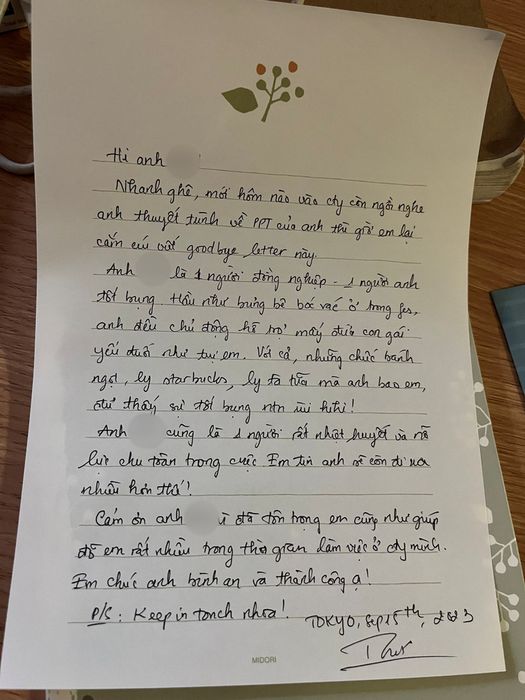 Hi anh
Nhanh ghê, mới hôm nào vào cty còn ngồi nghe
anh thuyết trình về PPT của anh thì giờ em lại
cắm cúi viết goodbye letter này.
Anh là 1 người đồng nghiệp - 1 người anh
tốt bụng. Hầu như bưng bê bốc vác ở trong
anh đều chủ động hỗ trợ mấy đứa con gái
yếu đuối như tụi em. Với cả, những chiếc bánh
ngọt, ly starbucks, ly mà anh bao em,
đủ thấy sự tốt bụng ntn rùi hihi!
Anh cũng là 1 người rất nhiệt huyết và nỗ
lực chu toàn trong cuộc Em tin anh sẽ còn đi xa
nhiều hơn thế!
Cám ơn anh đã tôn trọng em cũng như giúp
đỡ em rất nhiều trong thời gian làm việc ở cty mình.
Em chúc anh bình an và thành công ạ!
P/s: Keep in touch nhoa!
TOKYO, Sep 15th, 2023
MIDORI